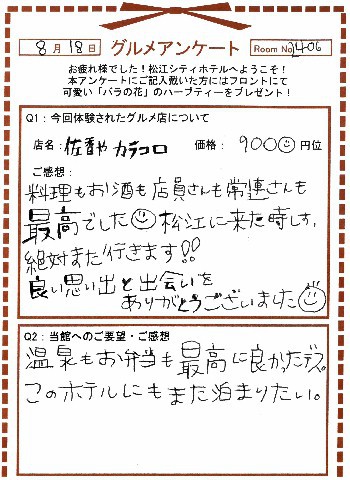 8月18日 グルメアンケート Room No.2406
お疲れ様でした！松江シティホテルへようこそ！
本アンケートにご記入戴いた方にはフロントにて
可愛い「バラの花」のハーブティーをプレゼント！
Q1：今回体験されたグルメ店について
店名：佐香や カラコロ 価格：9000円位
ご感想：
料理もお酒も店員さんも常連さんも
最高でした 松江に来た時は、
絶対また行きます!!
良い思い出と出会いを
ありがとうございました
Q2：当館へのご要望・ご感想
温泉もお弁当も最高に良かったデス。
このホテルにもまた泊まりたい。